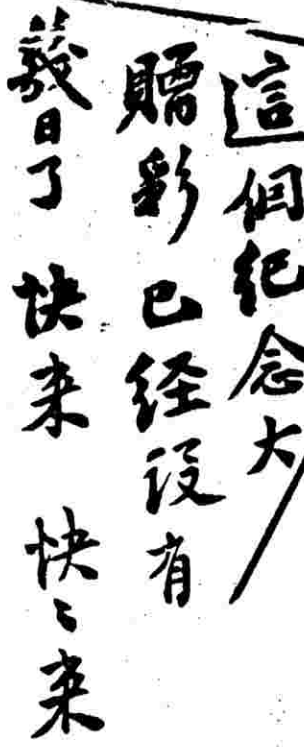 這個紀念大
贈彩已経没有
幾日了 快来 快々来